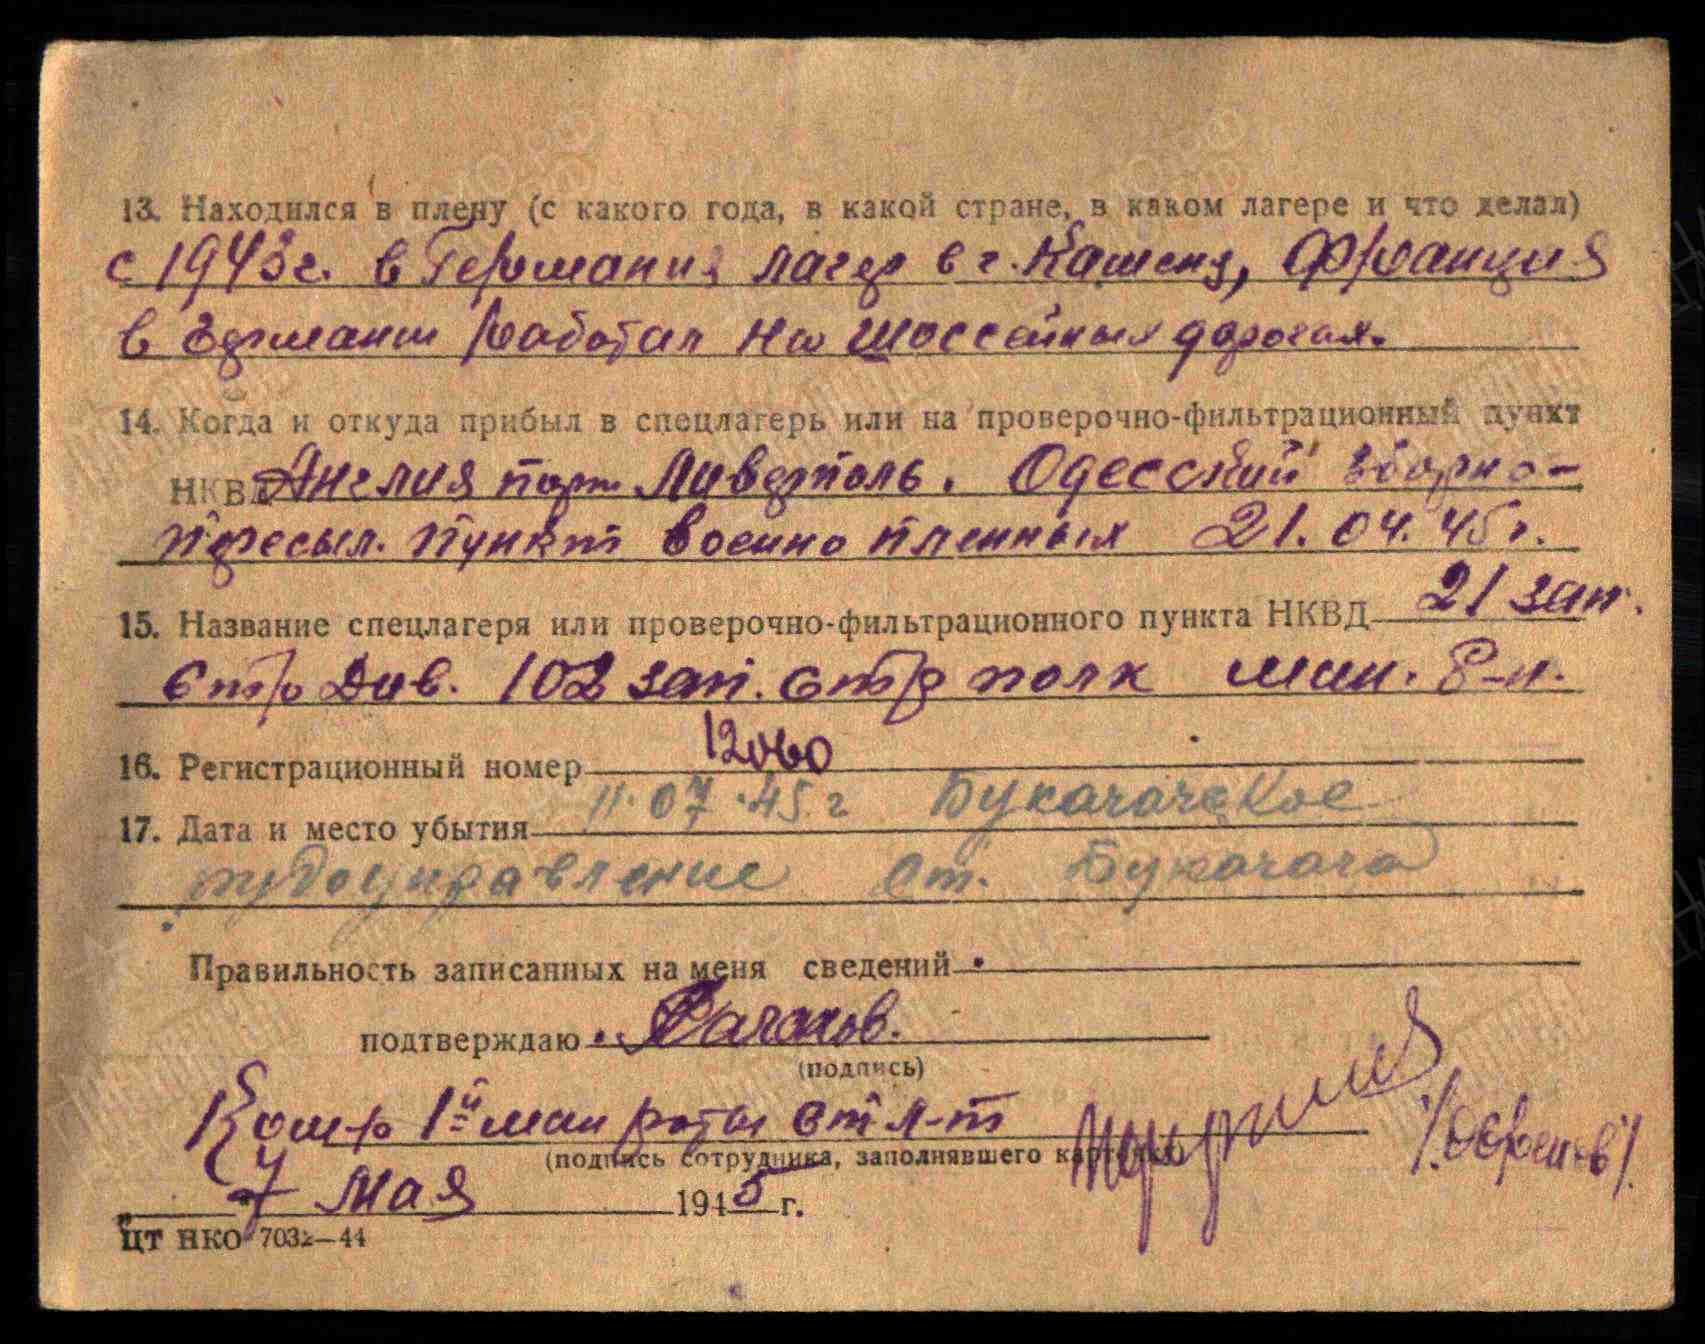 13. Находился в плену (с какого года, в какой стране, в каком лагере и что делал)
с 1943 г. в Германия лагер в г. Кашена, Франция
в Германи работал на шоссейных дорогах.
14. Когда и откуда прибыл в спецлагерь или на проверочно-фильтрационный пункт
НКВД Англия порт Ливерполь. Одесский зборно-
пересыл. пункт военно пленных 21.04.45 г.
15. Название спецлагеря или проверочно-фильтрационного пункта НКВД 21 зап.
стр Див. 102 зап. стр полк мин. Р-н.
16. Регистрационный номер 12060
17. Дата и место убытия 11.07.45 г Букачачское
рудоуправление ст. Букачача
Правильность записанных на меня сведений
подтверждаю
(подпись)
Ком-р 1й мин роты ст л-т
(подпись сотрудника, заполнявшего карточку)
7 мая 1945 г.
ЦТ НКО 7032—44